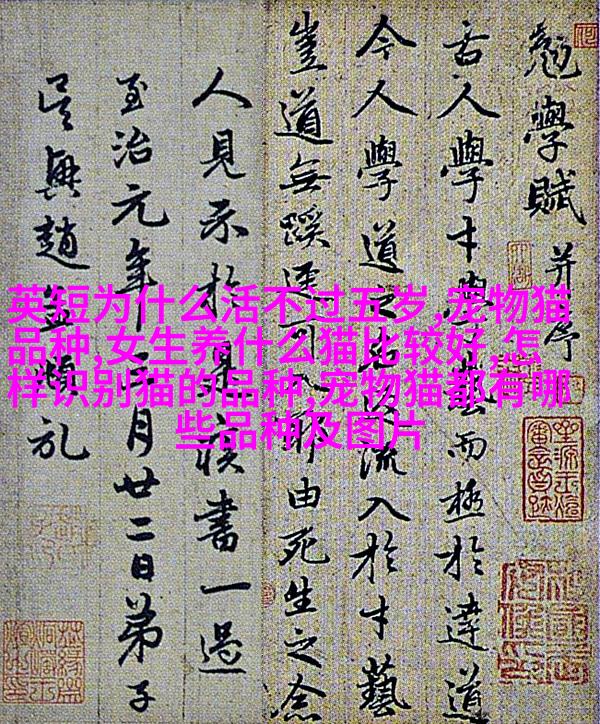 勉學賦并序
古人學才藝而極於達道
今人學道之流入於才藝
豈道無蹊逕可入耶由死生之念
人見示於書一過
至治元年月廿二日弟子
吳興趙孟頫
英短为什么活不过五岁,宠物猫
品种,女生养什么猫比较好,怎
样识别猫的品种,宠物猫都有哪
些品种及图片